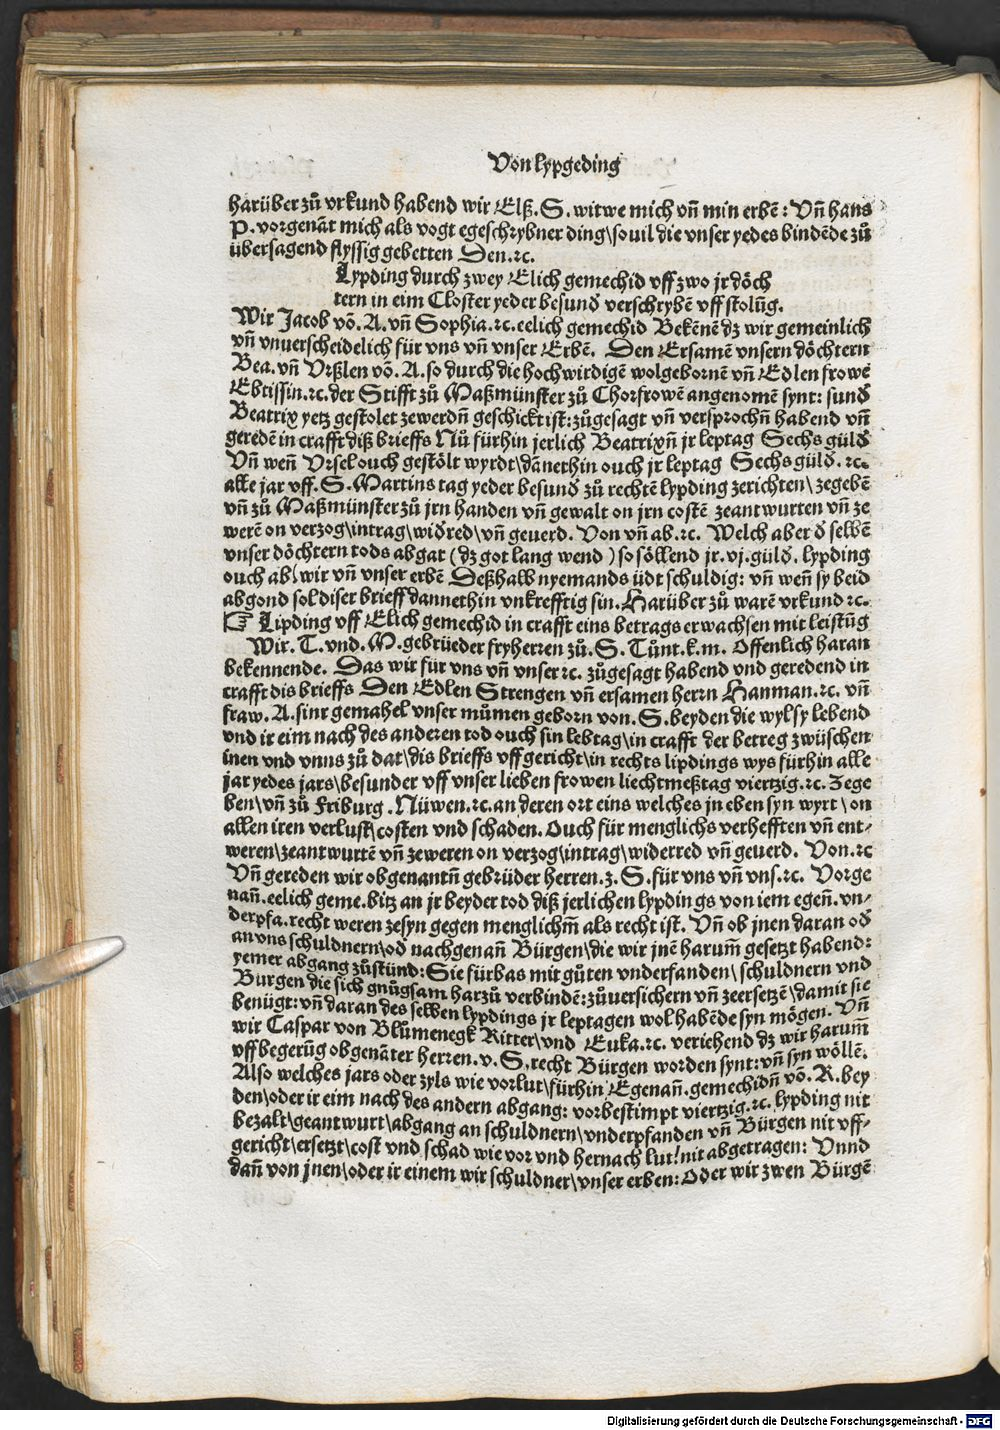 Von lypgeding
harüber zů vrkund habend wir Elß. S. witwe mich vn̄ min erbē: Vn̄ hans
P. vorgenāt mich als vogt egeschrybner ding\so uil die vnser yedes bindēde zů
übersagend flyssig gebetten Den. ꝛc.
Lypding durch zwey Elich gemechid vff zwo jr döch
tern in eim Closter yeder besund̄ verschrybē vff stolūg.
Wir Jacob vō. A. vn̄ Sophia. ꝛc. eelich gemechid Bekēnē dz wir gemeinlich
vn̄ vnuerscheidelich für vns vn̄ vnser Erbē. Den Ersamē vnsern döchtern
Bea. vn̄ Vrßlen vō. A. so durch die hochwirdigē wolgebornē vn̄ Edlen frowē
Ebtissin. ꝛc. der Stifft zů Maßmünster zů Chorfrowē angenomē synt: sund̄
Beatrix yetz gestolet zewerdn̄ geschickt ist: zůgesagt vn̄ versprochn̄ habend vn̄
geredē in crafft diß brieffs Nů fürhin jerlich Beatrixn̄ jr leptag Sechs güld̄
Vn̄ wen̄ Vrsel ouch gestölt wyrdt\dānethin ouch jr leptag Sechs güld̄. ꝛc.
alle jar vff. S. Martins tag yeder besund̄ zů rechtē lypding zerichten\zegebē
vn̄ zů Maßmünster zů jrn handen vn̄ gewalt on jrn costē zeantwurten vn̄ ze
werē on verzog\intrag\wid̄red\vn̄ geuerd. Von vn̄ ab. ꝛc. Welch aber d̄ selbē
vnser döchtern tods abgat (dz got lang wend) so söllend jr. vj. güld̄. lypding
ouch ab\wir vn̄ vnser erbē Deßhalb nyemands üdt schuldig: vn̄ wen̄ sy beid
abgond sol diser brieff dannethin vnkrefftig sin. Harüber zů warē vrkund ꝛc.
☞ Lipding vff Elich gemechid in crafft eins betrags erwachsen mit leistūg
Wir. T. vnd. M. gebrüeder fryherren zů. S. Tůnt. k. m. Offenlich haran
bekennende. Das wir für vns vn̄ vnser ꝛc. zůgesagt habend vnd geredend in
crafft dis brieffs Den Edlen Strengen vn̄ ersamen herrn Hanman. ꝛc. vn̄
fraw. A. sinr gemahel vnser můmen geborn von. S. beyden die wyl sy lebend
vnd ir eim nach des anderen tod ouch sin lebtag\in crafft der betreg zwüschen
inen vnd vnns zů dat\dis brieffs vffgericht\in rechts lipdings wys fürhin alle
jar yedes jars\besunder vff vnser lieben frowen liechtmeßtag viertzig. ꝛc. Zege
ben\vn̄ zů Friburg. Nüwen. ꝛc. an deren ort eins welches jn eben syn wyrt\on
allen iren verlust\costen vnd schaden. Ouch für menglichs verhefften vn̄ ent⸗
weren\zeantwurtē vn̄ zeweren on verzog\intrag\widerred vn̄ geuerd. Von. ꝛc
Vn̄ gereden wir obgenantn̄ gebrüder herren. z. S. für vns vn̄ vns. ꝛc. Vorge
nan̄. eelich geme. bitz an jr beyder tod diß jerlichen lypdings von iem egen̄. vn⸗
derpfa. recht weren zesyn gegen menglichm̄ als recht ist. Vn̄ ob jnen daran od̄
an vns schuldnern\od̄ nachgenan̄ Bürgen\die wir jnē harum̄ gesetzt habend:
yemer abgang zůstünd: Sie fürbas mit gůten vnderfanden\schuldnern vnd
Bürgen die sich gnůgsam harzů verbindē: zůuersichern vn̄ zeersetzē\damit sie
benügt: vn̄ daran des selben lypdings jr leptagen wol habēde syn mögen. Vn̄
wir Caspar von Blůmenegk Ritter\vnd Euka. ꝛc. veriehend dz wir harum̄
vff begerūg obgenāter herren. v. S. recht Bürgen worden synt: vn̄ syn wöllē.
Also welches jars oder zyls wie vorlut\fürhin Egenan̄. gemechidn̄ vō. R. bey
den\oder ir eim nach des andern abgang: vorbestimpt viertzig. ꝛc. lypding nit
bezalt\geantwurt\abgang an schuldnern\vnderpfanden vn̄ Bürgen nit vff⸗
gericht\ersetzt\cost vnd schad wie vor vnd hernach lut\nit abgetragen: Vnnd
dan̄ von jnen\oder ir einem wir schuldner\vnser erben: Oder wir zwen Bürgē
Digitalisierung gefördert durch die Deutsche Forschungsgemeinschaft - DFG